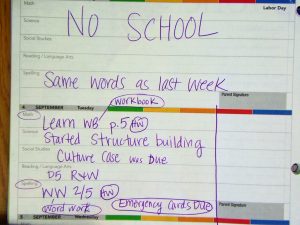 Labor Day
Math
NO SCHOOL
Science
Social Studies
Reading / Language Arts
Spelling
Same words as last week
Parent Signature
workbook
4 SEPTEMBER Tuesday
Math
Learn WB p.5 HW
Science
Started Structure building
Social Studies
Culture Case was Due
Reading / Language Arts
D5 R+W
Spelling
WW 2/5 HW
Parent Signature
word work
Emergency Cards Due
5 SEPTEMBER Wednesday